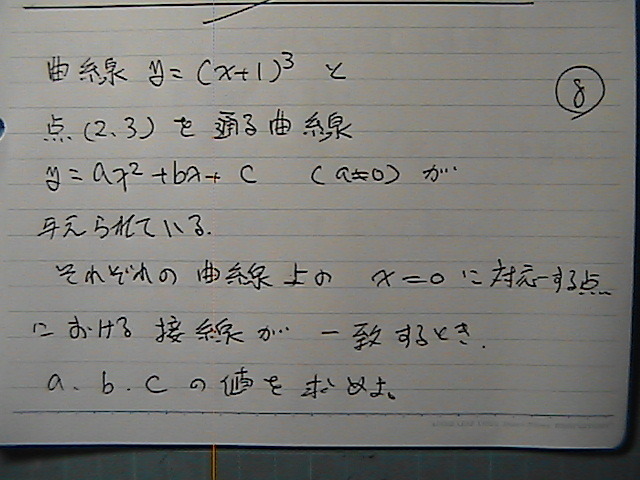 曲線 y=(x+1)³ と
⑧
点(2、3)を通る曲線
y=ax²+bx+c (a≠0) が
与えられている.
それぞれの曲線上の x=0 に対応する点
における接線が一致するとき.
a. b. c の値を求めよ。